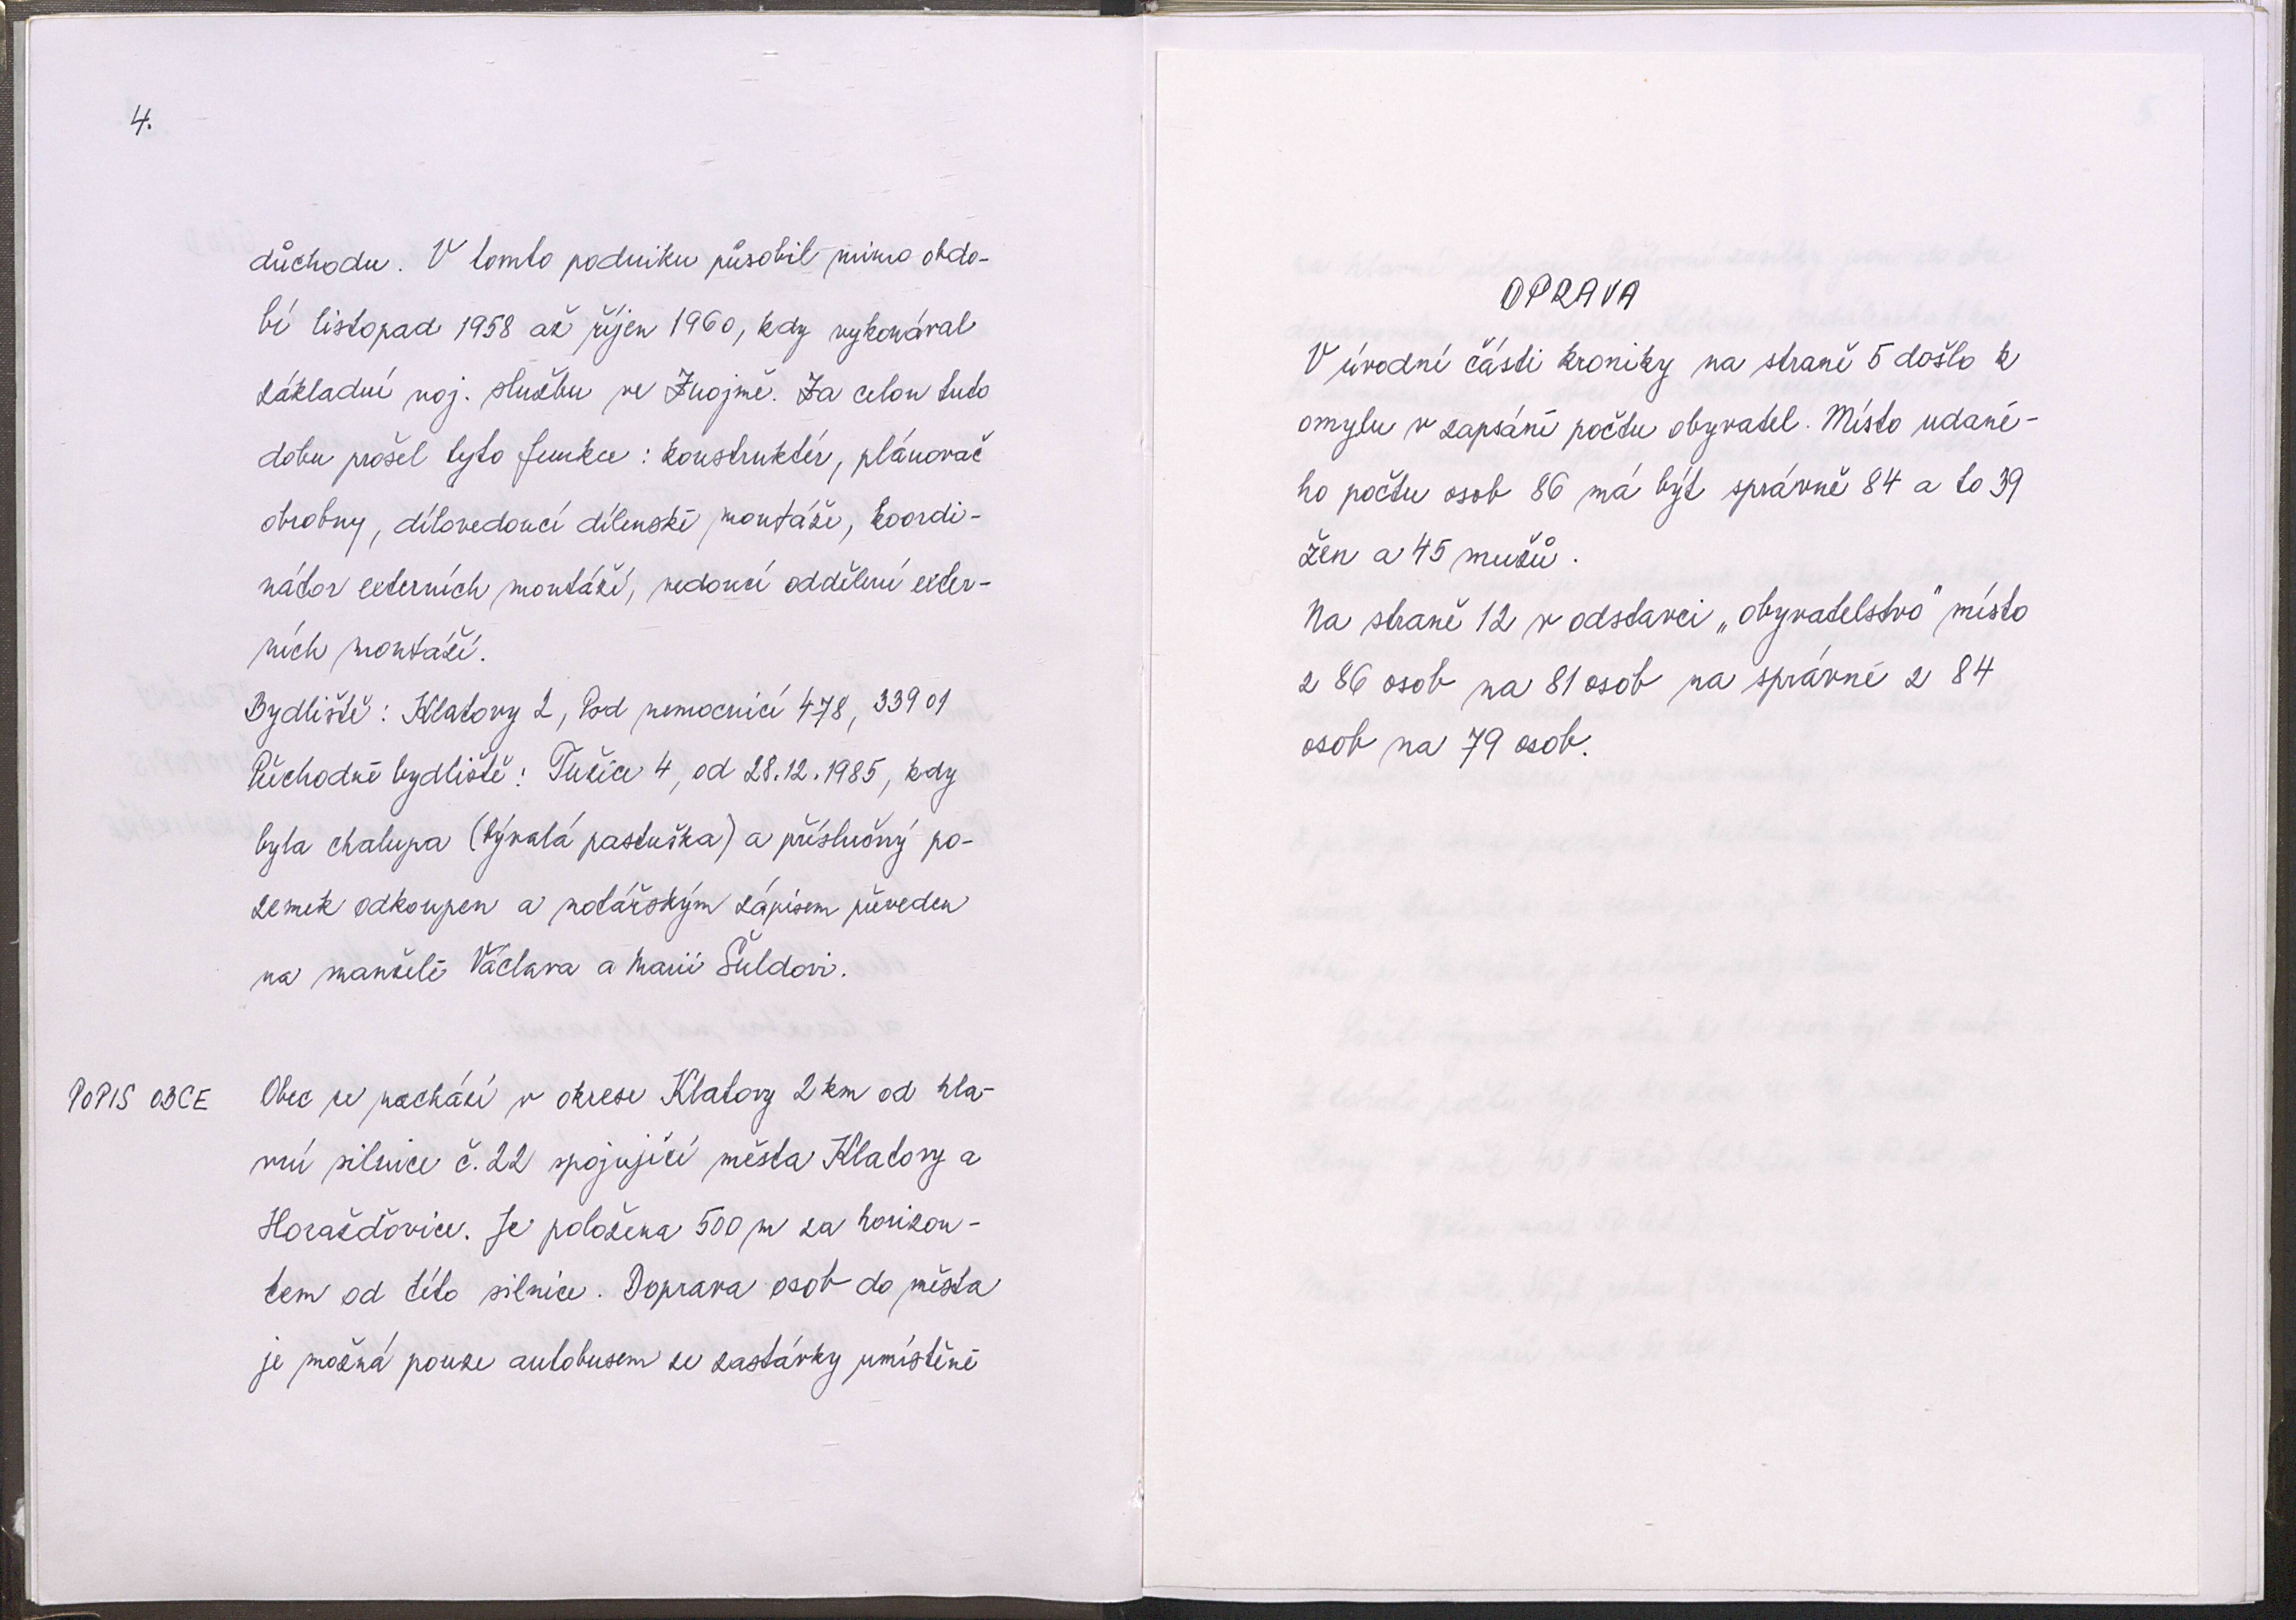 4.
důchodu. V tomto podniku působil mimo obdo-
bí listopad 1958 až říjen 1960, kdy vykonával
základní voj. službu ve Znojmě. Za celou tuto
dobu prošel tyto funkce: konstruktér, plánovač
obrobny, dílovedoucí dílenské montáže, koordi-
nátor externích montáží, vedoucí oddělení exter-
ních montáží.
Bydliště: Klatovy 2, Pod nemocnicí 478, 339 01
Přechodné bydliště: Tužice 4, od 28.12.1985, kdy
byla chalupa (bývalá pastuška) a příslušný po-
zemek odkoupen a notářským zápisem převeden
na manželé Václava a Marii Šuldovi.
POPIS OBCE
Obec se nachází v okrese Klatovy 2 km od hla-
vní silnice č. 22 spojující města Klatovy a
Horažďovice. Je položena 500 m za horizon-
tem od této silnice. Doprava osob do města
je možná pouze autobusem ze zastávky umístěné
OPRAVA
V úvodní části kroniky na straně 5 došlo k
omylu v zapsání počtu obyvatel. Místo udané-
ho počtu osob 86 má být správně 84 a to 39
žen a 45 mužů.
Na straně 12 v odstavci „obyvatelstvo" místo
z 86 osob na 81 osob na správné z 84
osob na 79 osob.